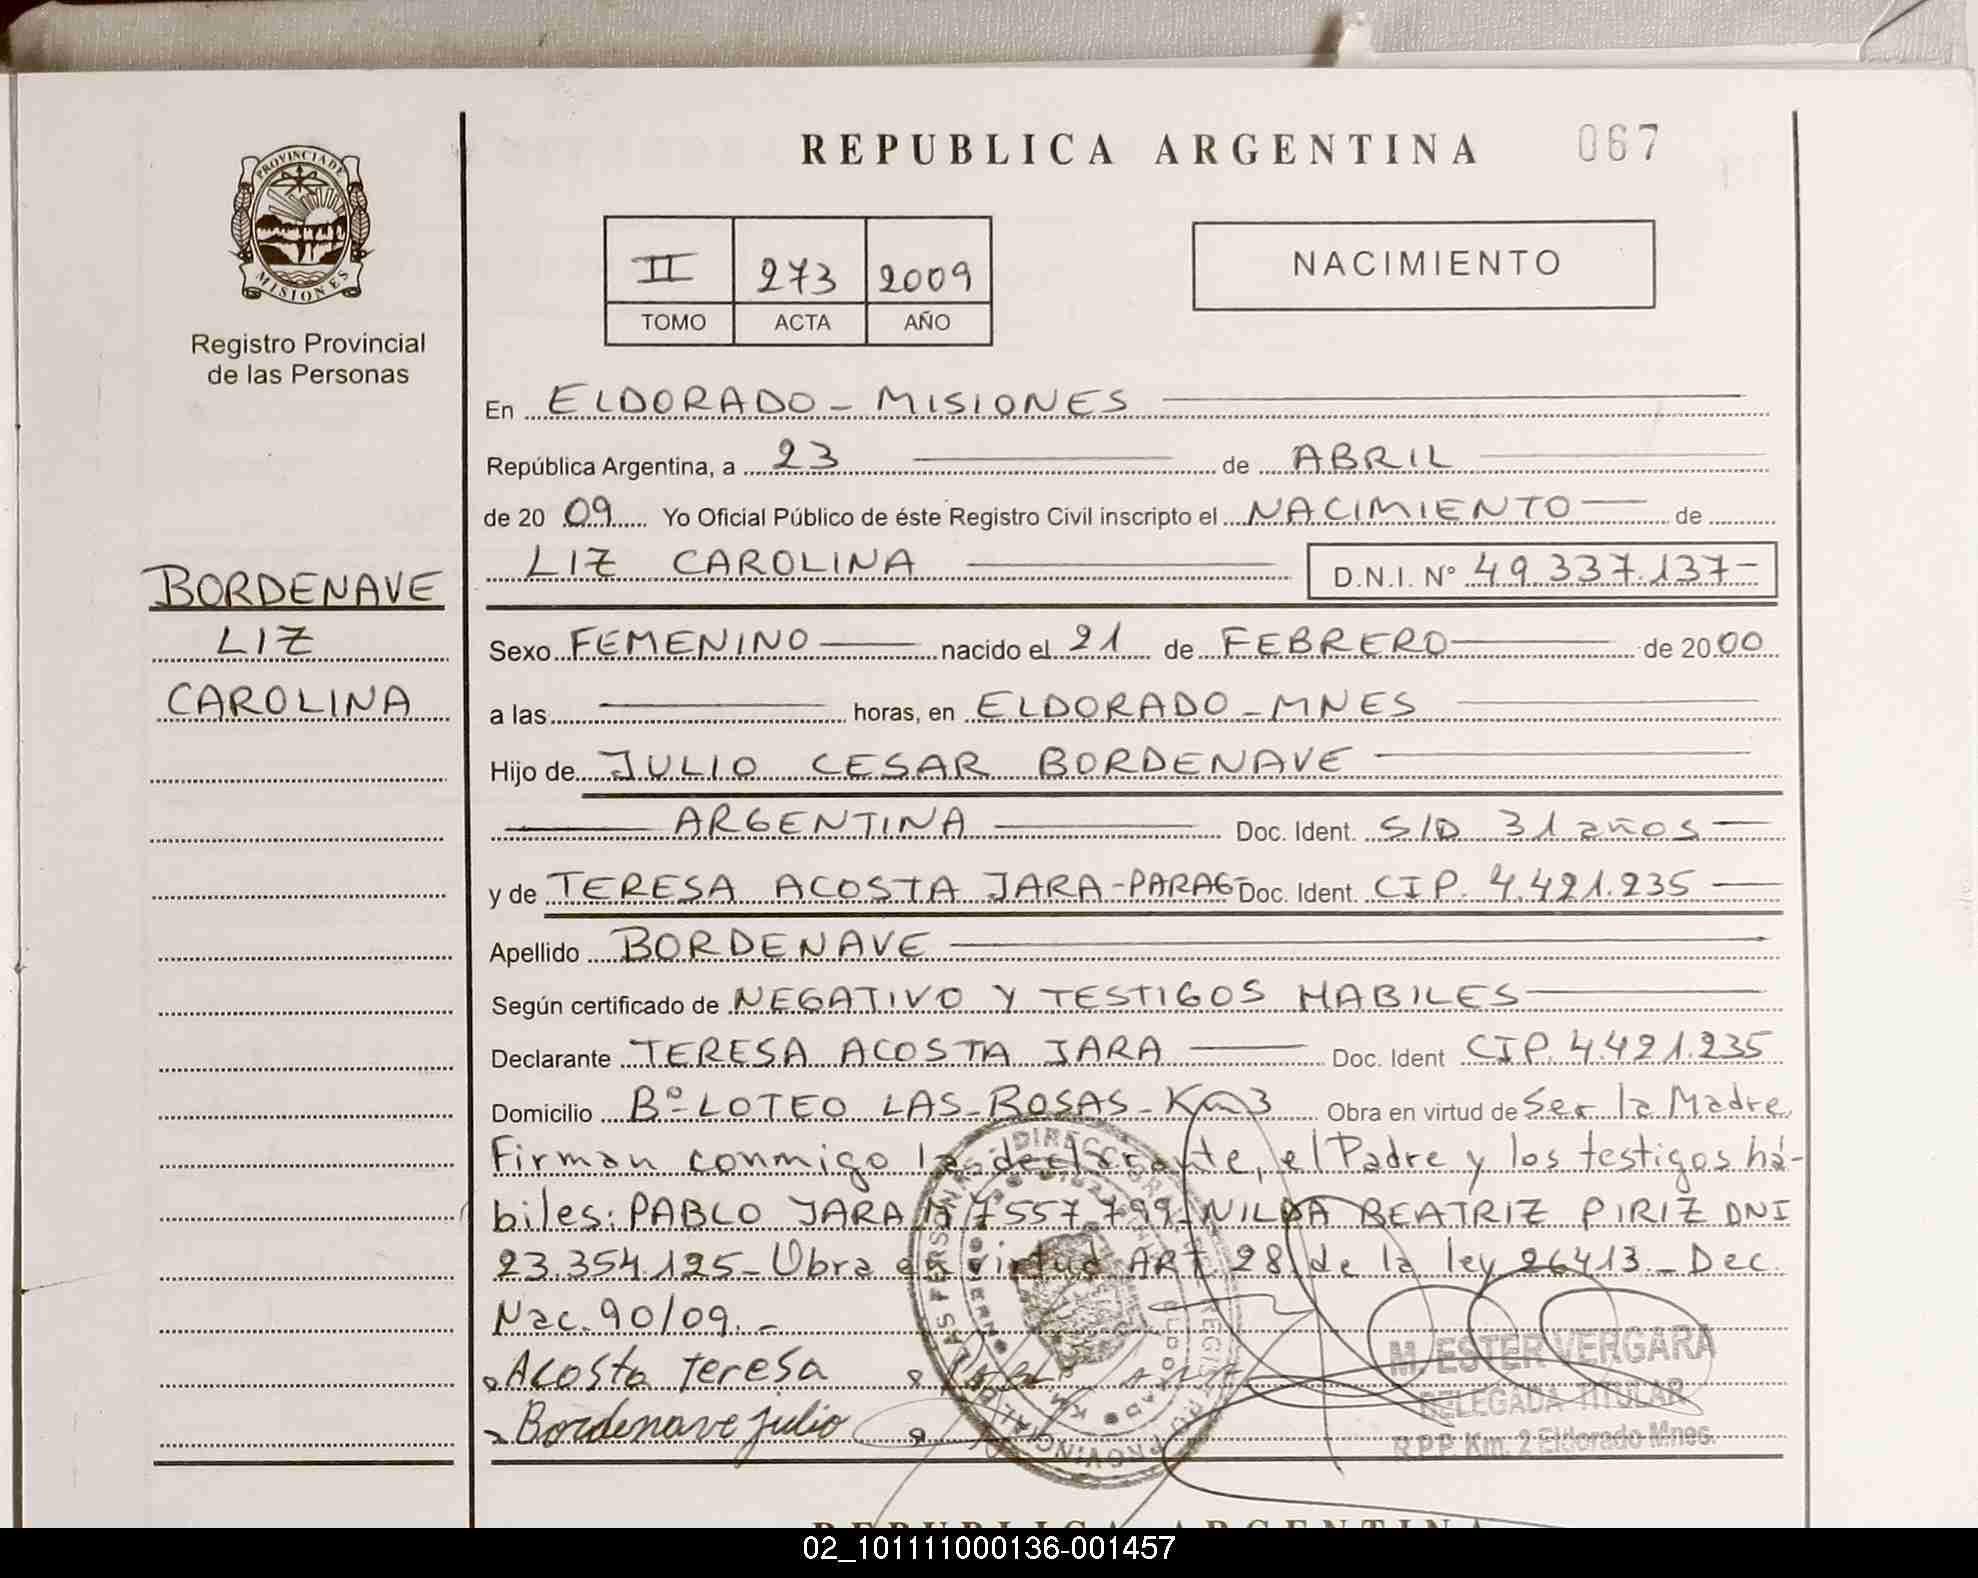 REPUBLICA ARGENTINA 067
PROVINCIA DE
MISIONES
Registro Provincial
de las Personas
II 273 2009
TOMO ACTA AÑO
NACIMIENTO
En ELDORADO - MISIONES
República Argentina, a 23 de ABRIL
de 20 09 Yo Oficial Público de éste Registro Civil inscripto el NACIMIENTO de
LIZ CAROLINA D.N.I. Nº 49.337.137-
BORDENAVE
LIZ
CAROLINA
Sexo FEMENINO nacido el 21 de FEBRERO de 2000
a las horas, en ELDORADO - MNES
Hijo de JULIO CESAR BORDENAVE
ARGENTINA Doc. Ident. S/D 31 años
y de TERESA ACOSTA JARA-PARAG- Doc. Ident. CIP. 4.421.235
Apellido BORDENAVE
Según certificado de NEGATIVO Y TESTIGOS HABILES
Declarante TERESA ACOSTA JARA Doc. Ident CIP. 4.421.235
Domicilio Bº LOTEO LAS ROSAS - Km 3 Obra en virtud de Ser la Madre
Firman conmigo la declarante, el Padre y los testigos há-
biles: PABLO JARA M 7557.799 - NILDA BEATRIZ PIRIZ DNI
23.354.125 - Obra en virtud ART 28 de la ley 26413 - Dec.
Nac. 90/09. -
Acosta Teresa
Bordenave Julio
M. ESTER VERGARA
DELEGADA TITULAR
R.P.P. Km. 2 Eldorado Mnes.
REPUBLICA ARGENTINA
02_101111000136-001457